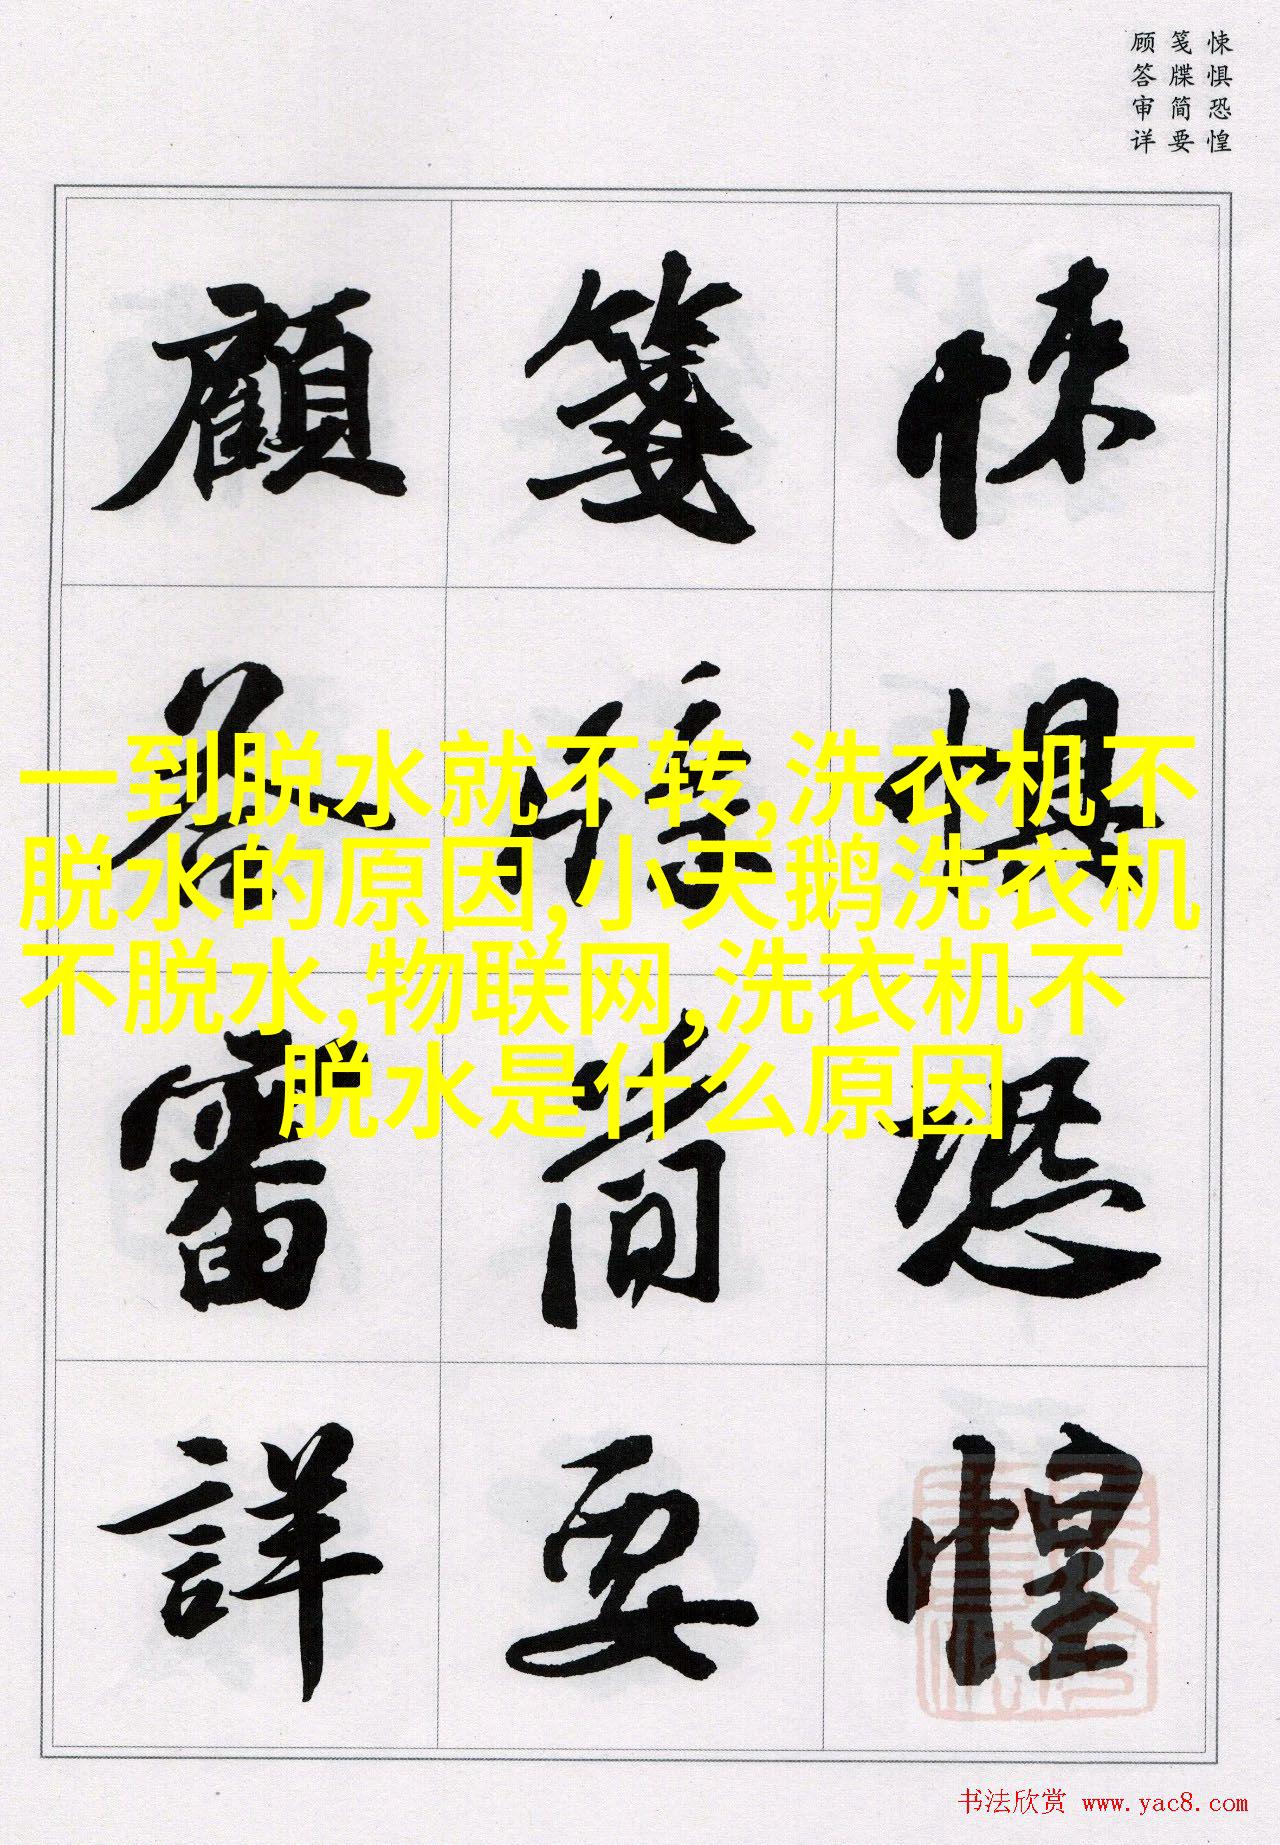 悚惧恐惶
笺牒简要
顾答审详
悚懼恐惶
箋牒簡要
顧答審詳
一到脱水就不转,洗衣机不
脱水的原因,小天鹅洗衣机
不脱水,物联网,洗衣机不
脱水是什么原因
书法欣赏 www.yac8.com